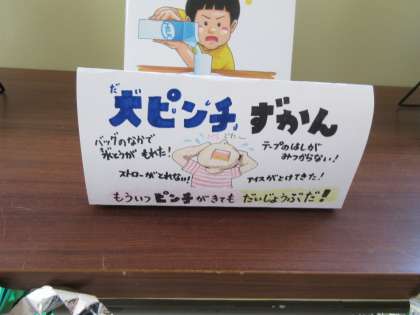 だ
大ピンチずかん
バッグのなかで
すいとうが もれた!
テープのはしが
みつからない!
ストローがとれない!
アイスがとけてきた!
もういつ ピンチ がきても だいじょうぶだ!